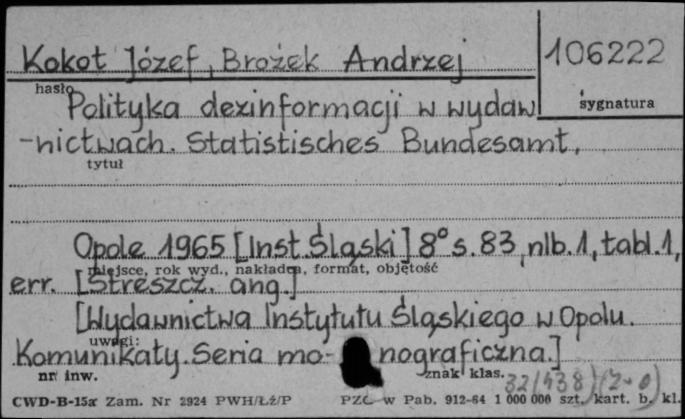 Kokot Józef, Brożek Andrzej 106222
hasło
Polityka dezinformacji w wydaw sygnatura
-nictwach. Statistisches Bundesamt.
tytuł
Opole 1965 [Inst. Śląski] 8° s. 83, nlb. 1, tabl. 1,
miejsce, rok wyd., nakładca, format, objętość
err. [Streszcz. ang.]
[Wydawnictwa Instytutu Śląskiego w Opolu.
uwagi:
Komunikaty. Seria mo- nograficzna.]
nr inw. znak klas.
CWD-B-15a Zam. Nr 2924 PWH/Łż/P PZG w Pab. 912-64 1 000 000 szt. kart. b. kl.